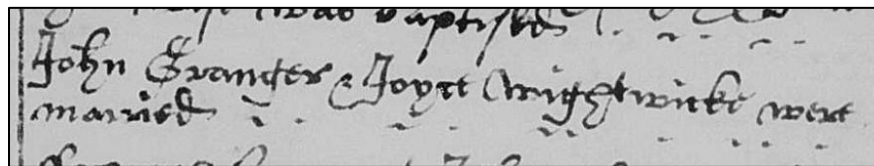 was baptised
John Granger & Joyce Wrightwicke were
married